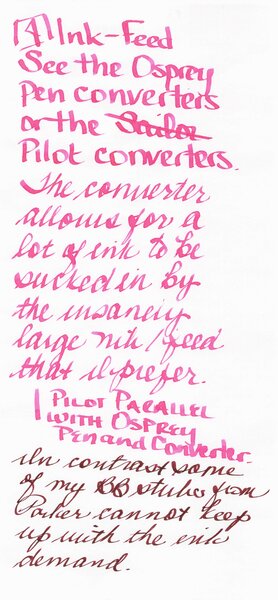 [4] Ink-Feed
See the Osprey
Pen converters
or the Sailor
Pilot converters.
The converter
allows for a
lot of ink to be
sucked in by
the insanely
large nib/feed
that I prefer.
Pilot Parallel
with Osprey
Pen and Converter.
In contrast some
of my BB stubs from
Parker cannot keep
up with the ink
demand.